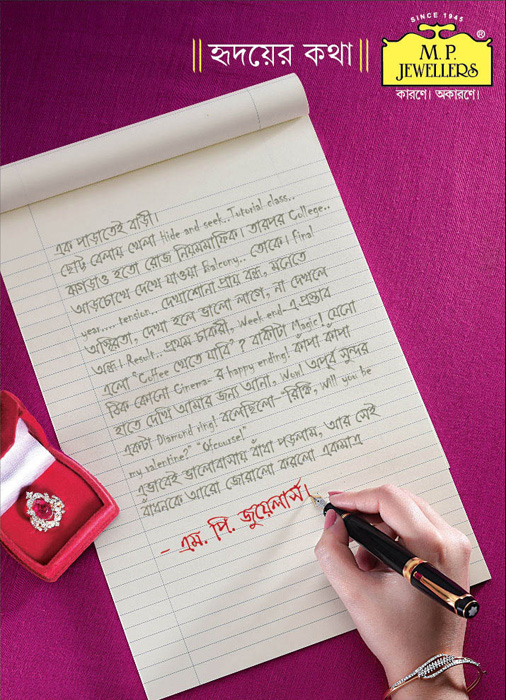 || হৃদয়ের কথা ||
SINCE 1945
M. P.
JEWELLERS
®
কারণে। অকারণে।
এক পাড়াতেই বাড়ী।
ছোট্ট বেলায় খেলা Hide and seek..Tutorial class..
ঝগড়াও হতো রোজ নিয়মমাফিক। তারপর College..
আড়চোখে দেখে যাওয়া Balcony.. তোকে। Final
year.... tension.. দেখাশোনা প্রায় বন্ধ, মনেতে
অস্থিরতা, দেখা হলে ভালো লাগে, না দেখলে
অন্ধ। Result.. প্রথম চাকরী, Week end-এ প্রস্তাব
এলো "Coffee খেতে যাবি"? বাকীটা Magic! যেনো
ঠিক কোনো Cinema-র happy ending! কাঁপা কাঁপা
হাতে দেখি আমার জন্য আনা, Wow! অপূর্ব সুন্দর
একটা Diamond ring! বলেছিলো-"রিঙ্কি, Will you be
my valentine?" "Ofcourse!"
এভাবেই ভালোবাসায় বাঁধা পড়লাম, আর সেই
বাঁধনকে আরো জোরালো করলো একমাত্র
- এম. পি. জুয়েলার্স।